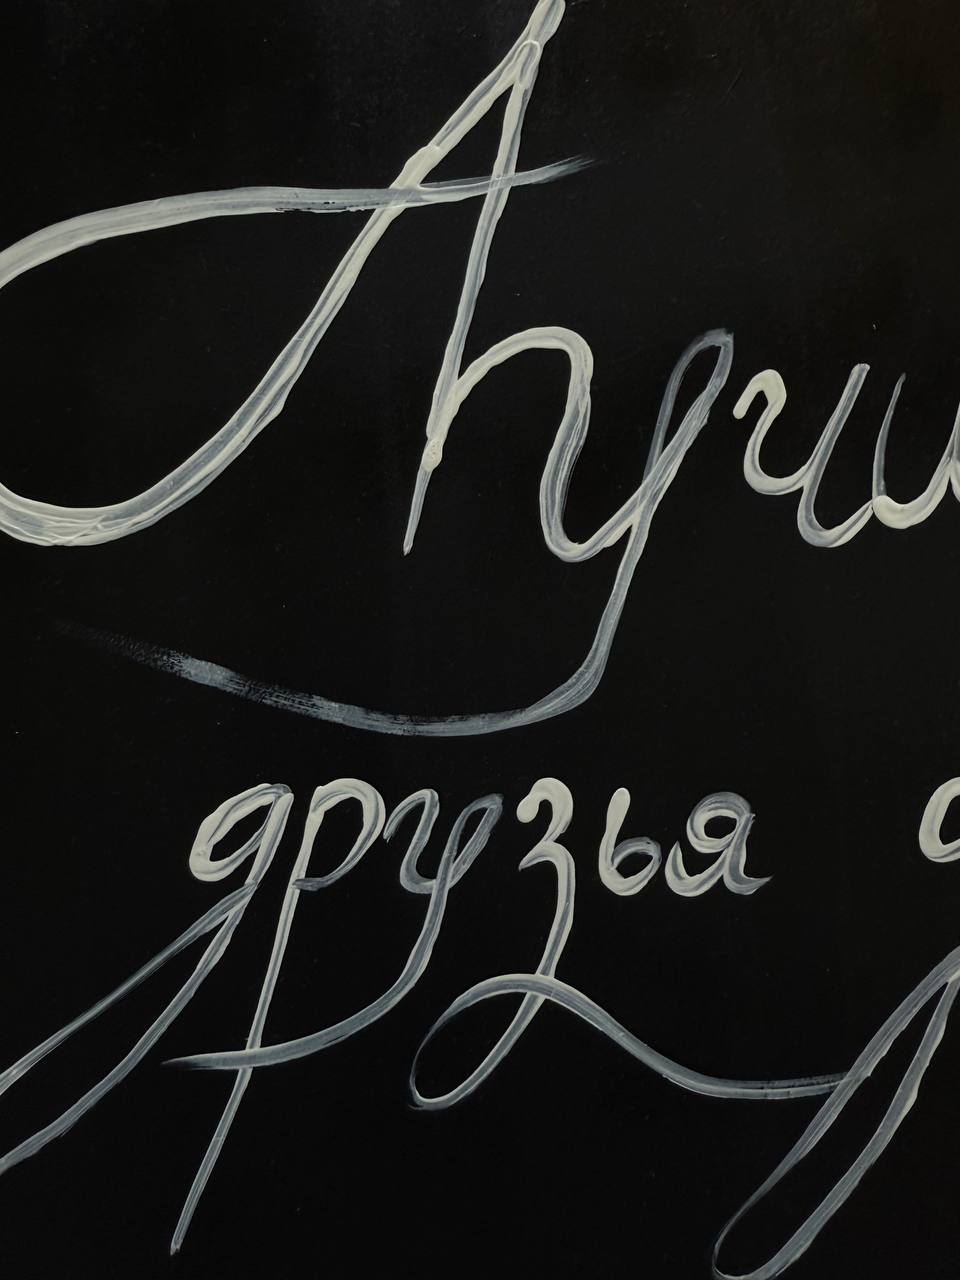 Лучш
друзья д